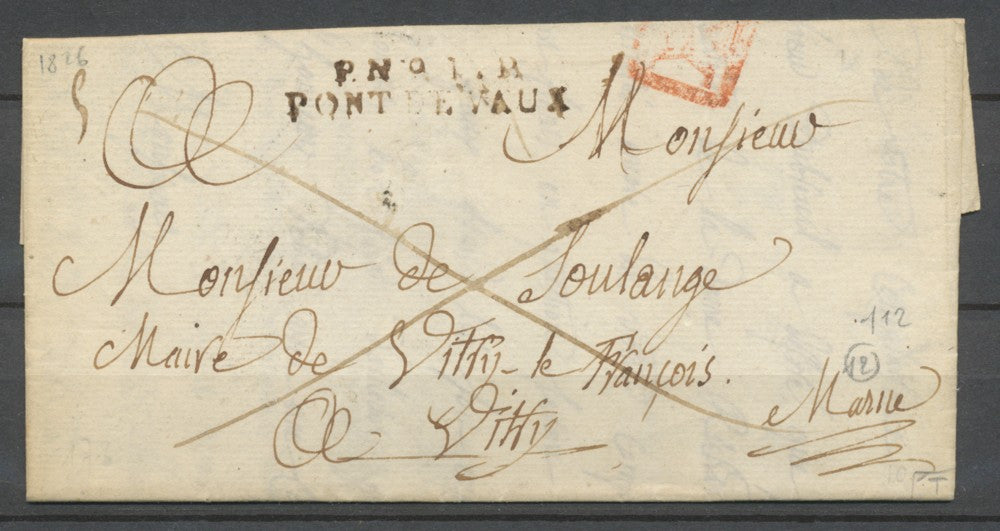 1826
P.N°9.L.R
PONT DE VAUX
A Monsieur
Monsieur de Soulange
Maire de Vitry-le François.
A Vitry
Marne
112
12